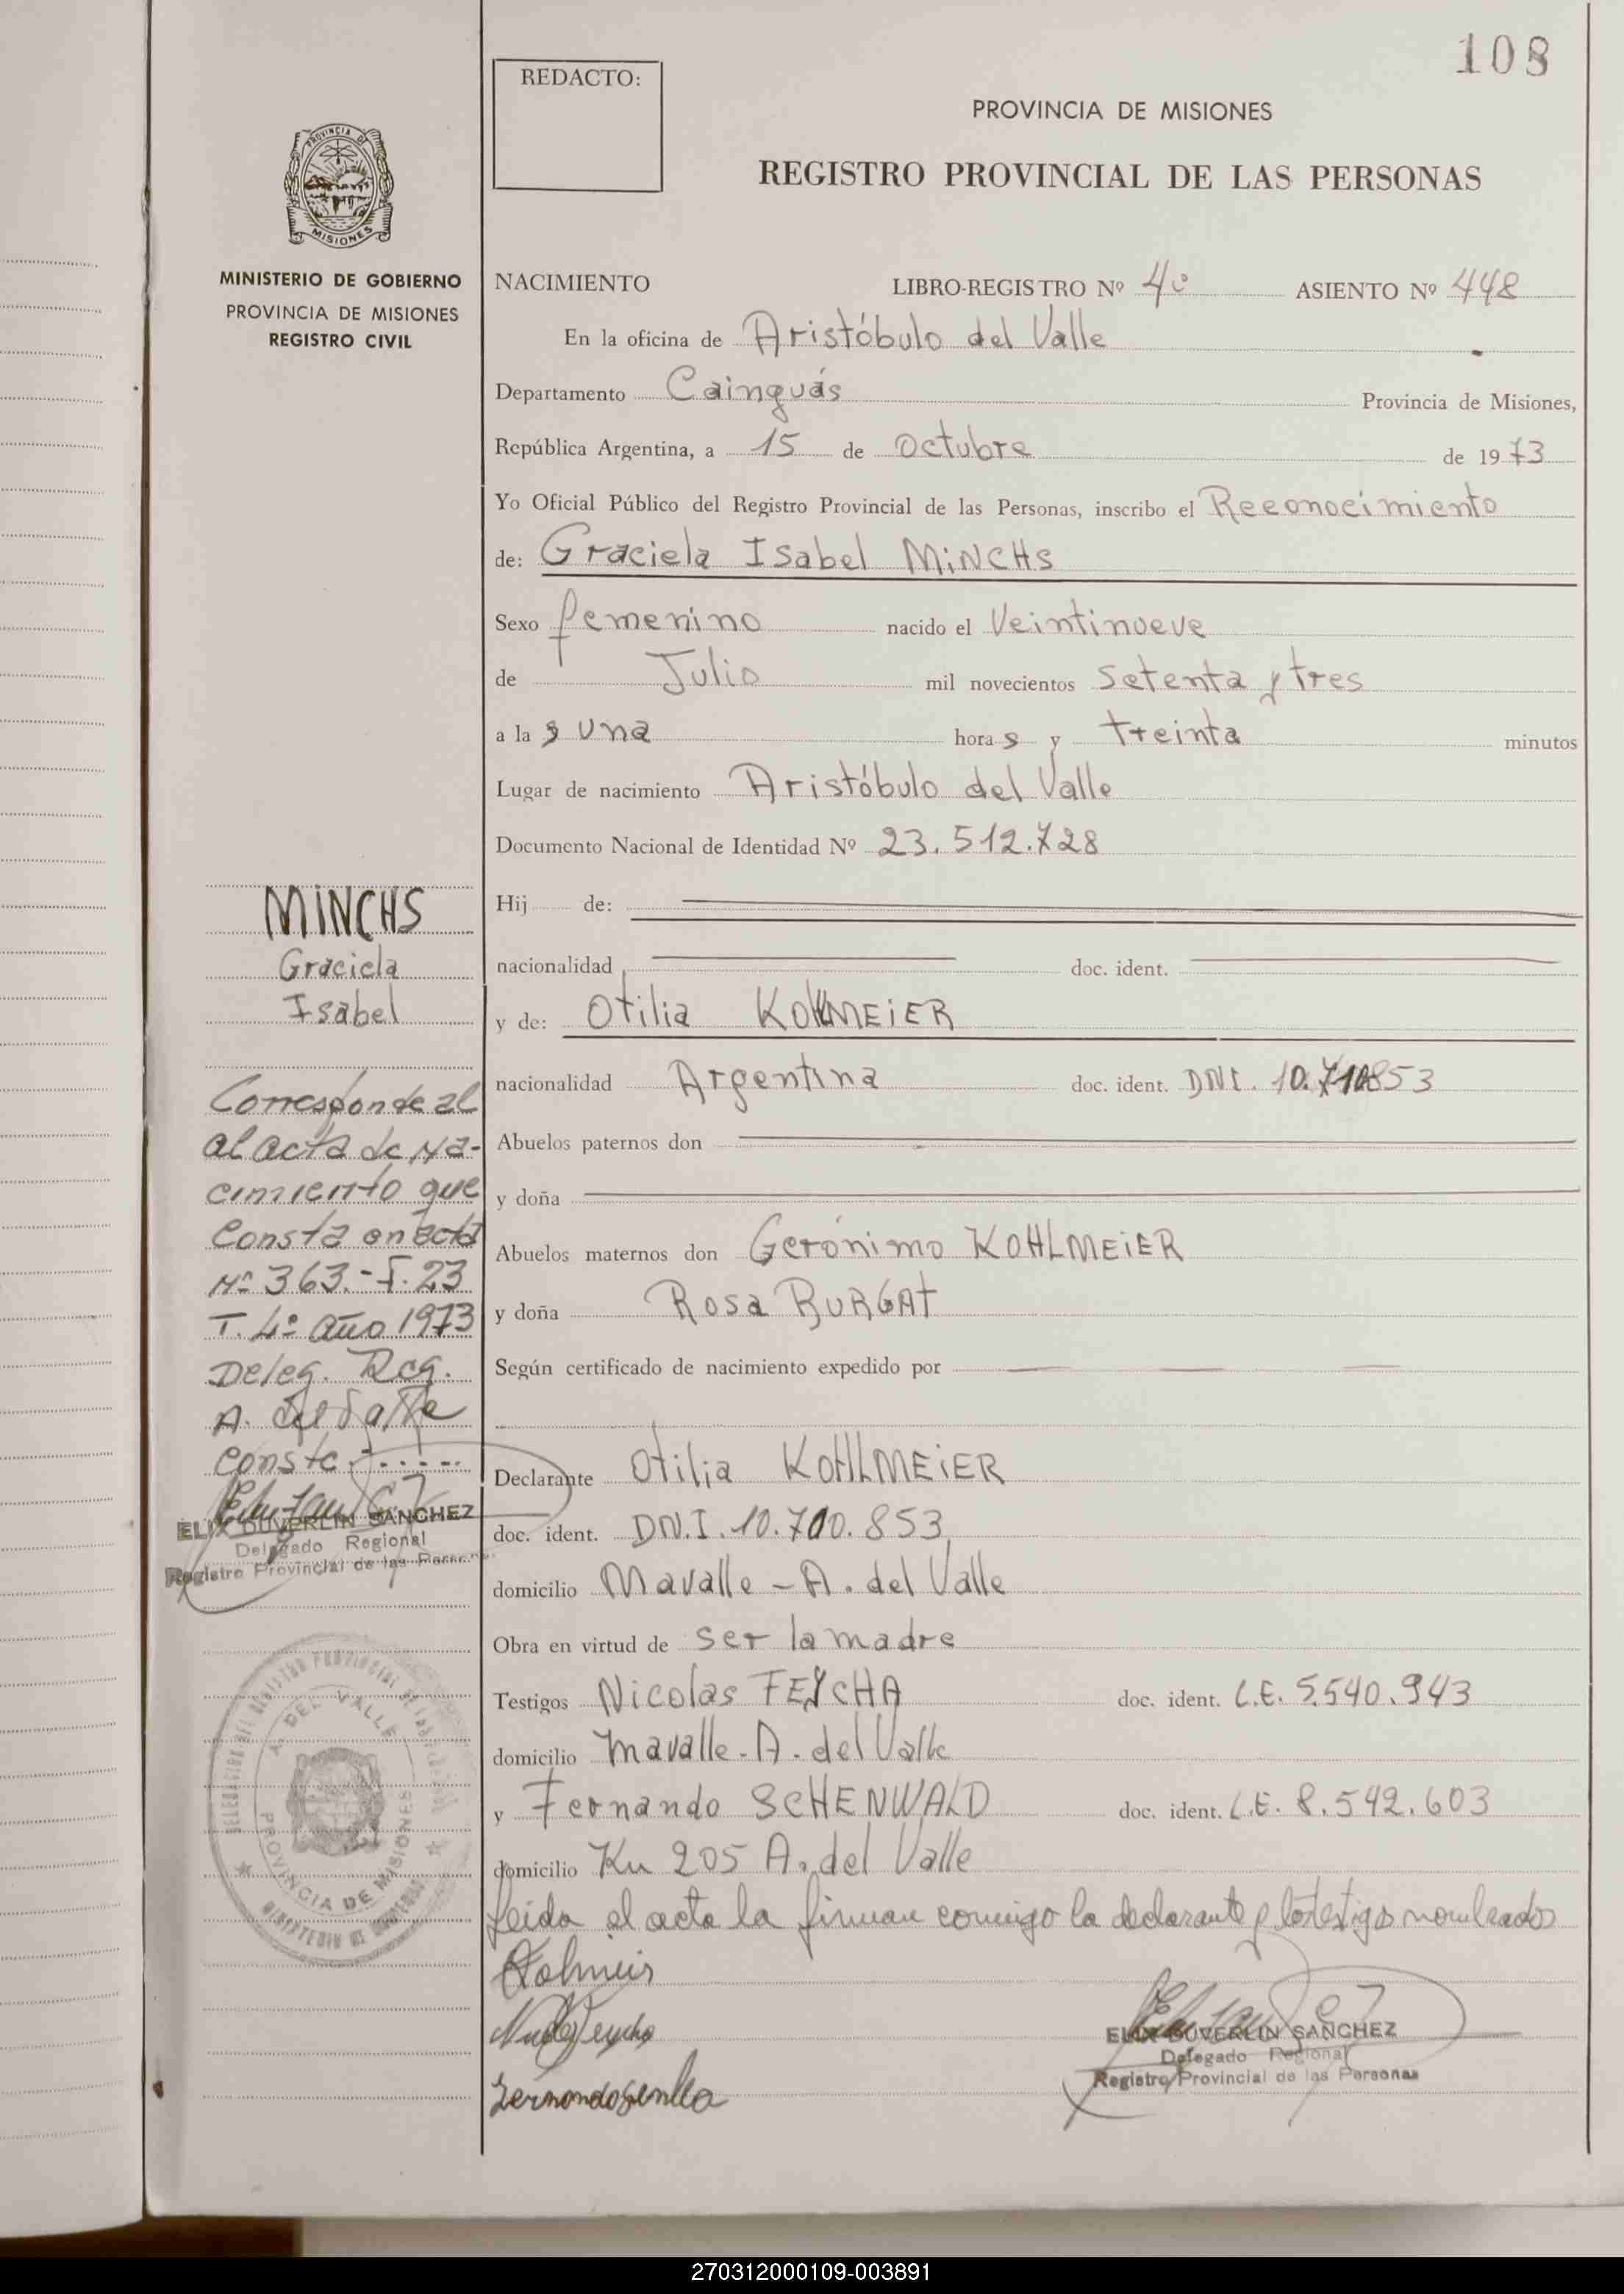 108
REDACTO:
PROVINCIA DE MISIONES
REGISTRO PROVINCIAL DE LAS PERSONAS
PROVINCIA DE
MISIONES
MINISTERIO DE GOBIERNO
PROVINCIA DE MISIONES
REGISTRO CIVIL
NACIMIENTO LIBRO-REGISTRO Nº 4º ASIENTO Nº 448
En la oficina de Aristóbulo del Valle
Departamento Cainguás Provincia de Misiones,
República Argentina, a 15 de Octubre de 1973
Yo Oficial Público del Registro Provincial de las Personas, inscribo el Reconocimiento
de: Graciela Isabel MiNCHs
Sexo femenino nacido el Veintinueve
de Julio mil novecientos setenta y tres
a la s una hora s y treinta minutos
Lugar de nacimiento Aristóbulo del Valle
Documento Nacional de Identidad Nº 23.512.728
Hij de:
nacionalidad doc. ident.
y de: Otilia KOHLMEiER
nacionalidad Argentina doc. ident. DNI. 10.710853
Abuelos paternos don
y doña
Abuelos maternos don Gerónimo KOHLMEiER
y doña Rosa BURGAt
Según certificado de nacimiento expedido por
Declarante Otilia KOHLMEiER
doc. ident. DN.I. 10.700.853
domicilio Mavalle - A. del Valle
Obra en virtud de ser la madre
Testigos Nicolas FEYCHA doc. ident. L.E. 5.540.943
domicilio mavalle - A. del Valle
y Fernando SCHENWALD doc. ident. L.E. 8.542.603
domicilio Km 205 A. del Valle
Leida el acta la firman conmigo la declarante y los testigos nombrados
ELIX DUVERLIN SANCHEZ
Delegado Regional
Registro Provincial de las Personas
MiNCHS
Graciela
Isabel
Corresponde al
al acta de Na-
cimiento que
Consta en acta
Nº 363.- F. 23
T. 4º año 1973
Deleg. Reg.
A. del Valle
Conste
ELIX DUVERLIN SANCHEZ
Delegado Regional
Registro Provincial de las Personas
A. DEL VALLE
PROVINCIA DE MISIONES
270312000109-003891